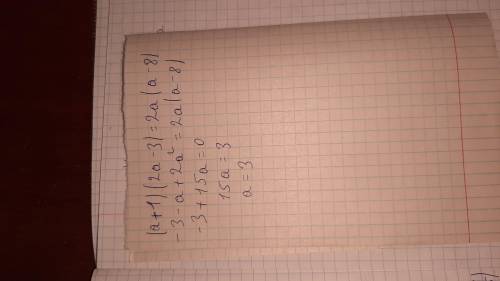 (a+1)(2a-3)=2a(a-8)
-3-a+2a²=2a(a-8)
-3+15a=0
15a=3
a=3